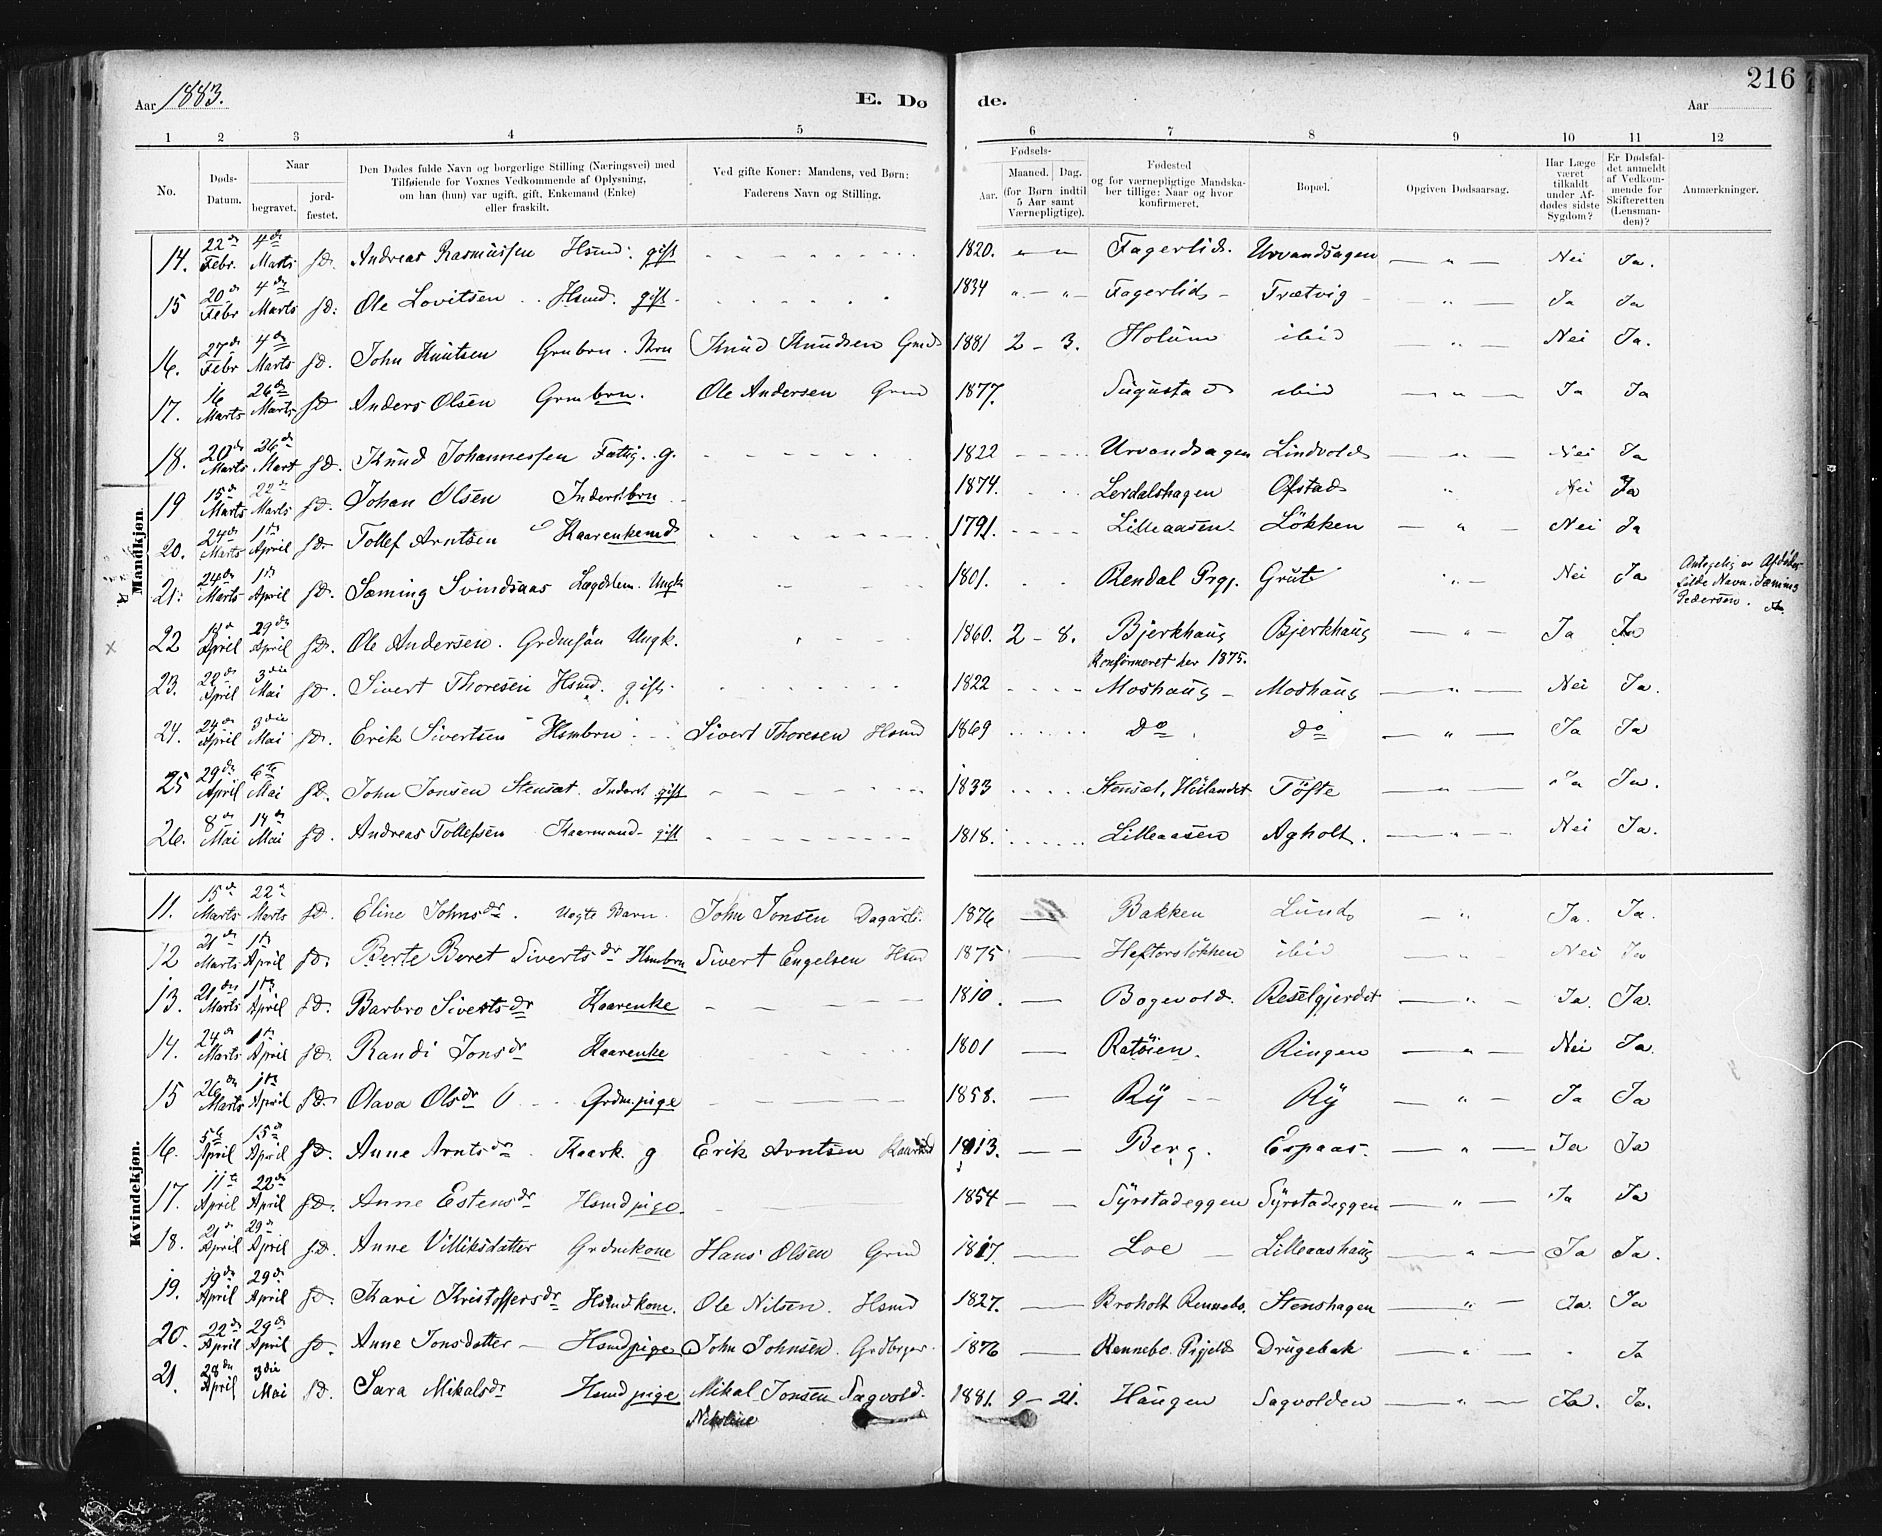 216
Aar 1883.
E. Dø
de.
Aar
1 2 3 4 5 6 7 8 9 10 11 12
No.
Døds-Datum.
Naar
begravet.
jord-fæstet.
Den Dødes fulde Navn og borgerlige Stilling (Næringsvei) med
Tilføiende for Voxnes Vedkommende af Oplysning,
om han (hun) var ugift, gift, Enkemand (Enke)
eller fraskilt.
Ved gifte Koner: Mandens, ved Børn:
Faderens Navn og Stilling.
Fødsels-
Aar. Maaned. Dag.
(for Børn indtil
5 Aar samt
Værnepligtige).
Fødested
og for værnepligtige Mandska-
ber tillige: Naar og hvor
konfirmeret.
Bopæl.
Opgiven Dødsaarsag.
Har Læge
været
tilkaldt
under Af-
dødes sidste
Sygdom?
Er Dødsfal-
det anmeldt
af Vedkom-
mende for
Skifteretten
(Lensman-
den)?
Anmerkninger.
Mandkjøn.
14. 22de Febr. 4de Marts s.D. Andreas Rasmussen Hsmd. gift 1820. Fagerlid. Urvandshagen — " — Nei Ja.
15 20de Febr 4de Marts s.D. Ole Lovitsen Hsmd. gift 1834 Fagerlid Trætvig — " — Ja Ja
16. 27de Febr 4de Marts s.D. John Knutsen Grmbrn. Knud Knudsen Grmd 1881 2 - 3. Holum ibid — " — Nei Ja.
17. 16 Marts 26de Marts s.D Anders Olsen Grmbrn. Ole Andersen Grmd 1877. ibid — " — Ja Ja
18. 20de Marts 26de Mart s.D. Knud Johannessen Fattig. g. 1822 Urvandshagen Lindvold — " — Nei Ja
19 15de Marts 22de Marts s.D. Johan Olsen Inderstbrn 1874. Lerdalshagen Ofstad " Nei Ja
20. 24de Marts 1ste April s.D. Tollef Arntsen Kaarenkemd 1791. Lilleaasen Løkken — " — Nei Ja
21. 24de Marts 1ste April s.D. Sæming Svindsaas Lægdslem. Ungk 1801. Rendal Prgj. Grut " — Nei Ja Antagelig er Afdødes fulde Navn: Sæming Pedersen.
22 18de April 29de April s.D. Ole Andersen. Grdmsøn Ungk. 1860. 2 - 8. Bjerkhaug Bjerkhaug — " — Ja Ja
Konfirmeret her 1875.
23. 22de April 3die Mai s.D. Sivert Thoresen Hsmd. gift. 1822 Moshaug Moshaug — " — Nei Ja.
24. 24de April 3die Mai s.D. Erik Sivertsen Hsmbrn Sivert Thoresen Hsmd 1869 do do — " — Ja Ja
25 29de April 6te Mai s.D. John Jonsen Stensæt. Inderst gift 1833 Stensæt, Høilandet Tøfte — " — Ja Ja.
26. 8de Mai 14de Mai s.D. Andreas Tollefsen Kaarmand gift 1818. Lilleaasen Agholt. — " — Nei Ja.
Kvindekjøn.
11. 15de Marts 22de Marts s.D. Eline Johnsdr. Uægte Barn. John Jonsen Dagarb. 1876 — Bakken Lund — " Ja. Ja.
12 21de Marts 1ste April s.D. Berte Beret Sivertsdr Hsmbrn Sivert Engelsen Hsmd 1875 — Heftorsløkken ibid " Nei Ja
13. 21de Marts 1ste April s.D. Barbro Sivertsdr Kaarenke 1810. — Bogevold. Reselgjerdet — " — Ja. Ja.
14. 24de Marts 1ste April s.D. Randi Jonsdr Kaarenke 1801 — Ratøien. Ringen — " — Nei Ja.
15 26de Marts 1ste April s.D. Olava Olsdr Grdm.pige 1858. — Ry Ry — " — Ja Ja
16. 5te April 15de April s.D. Anne Arntsdr. Kaark. g Erik Arntsen Kaarmd 1813. — Berg. Espaas. — " — Ja Ja
17. 11te April 22de April s.D. Anne Estensdr Hsmdpige 1854 — Syrstadeggen Syrstadeggen — " — Ja Ja
18. 21de April 29de April s.D. Anne Villiksdatter Grdmkone Hans Olsen Grmd 1817. — Loe Lilleaashaug — " — Ja Ja.
19. 19de April 29de April s.D. Kari Kristoffersdr Hsmdkone. Ole Nilsen. Hsmd 1827. — Broholt Rennebo. Stenshagen — " — Ja. Ja
20. 22de April 29de April s.D. Anne Jonsdatter Hsmdpige John Johnsen. 1876 — Rennebo Prgjeld Drugebak — " — " Ja
21. 28de April 3die Mai s.D. Sara Mikalsdr Hsmdpige Mikal Jonsen Sagvold. 1881. 9 - 21. Haugen Sagvolden — " — Ja. Ja.